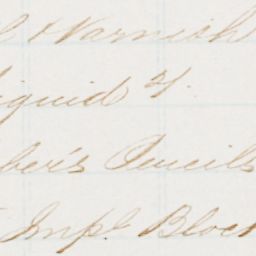 & Varnish
Liquid 4.
ber's Pencils
Impl Block